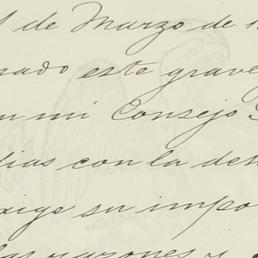 de Marzo de
sado este grave
mi Consejo
dias con la de
xige su impo
las razones y